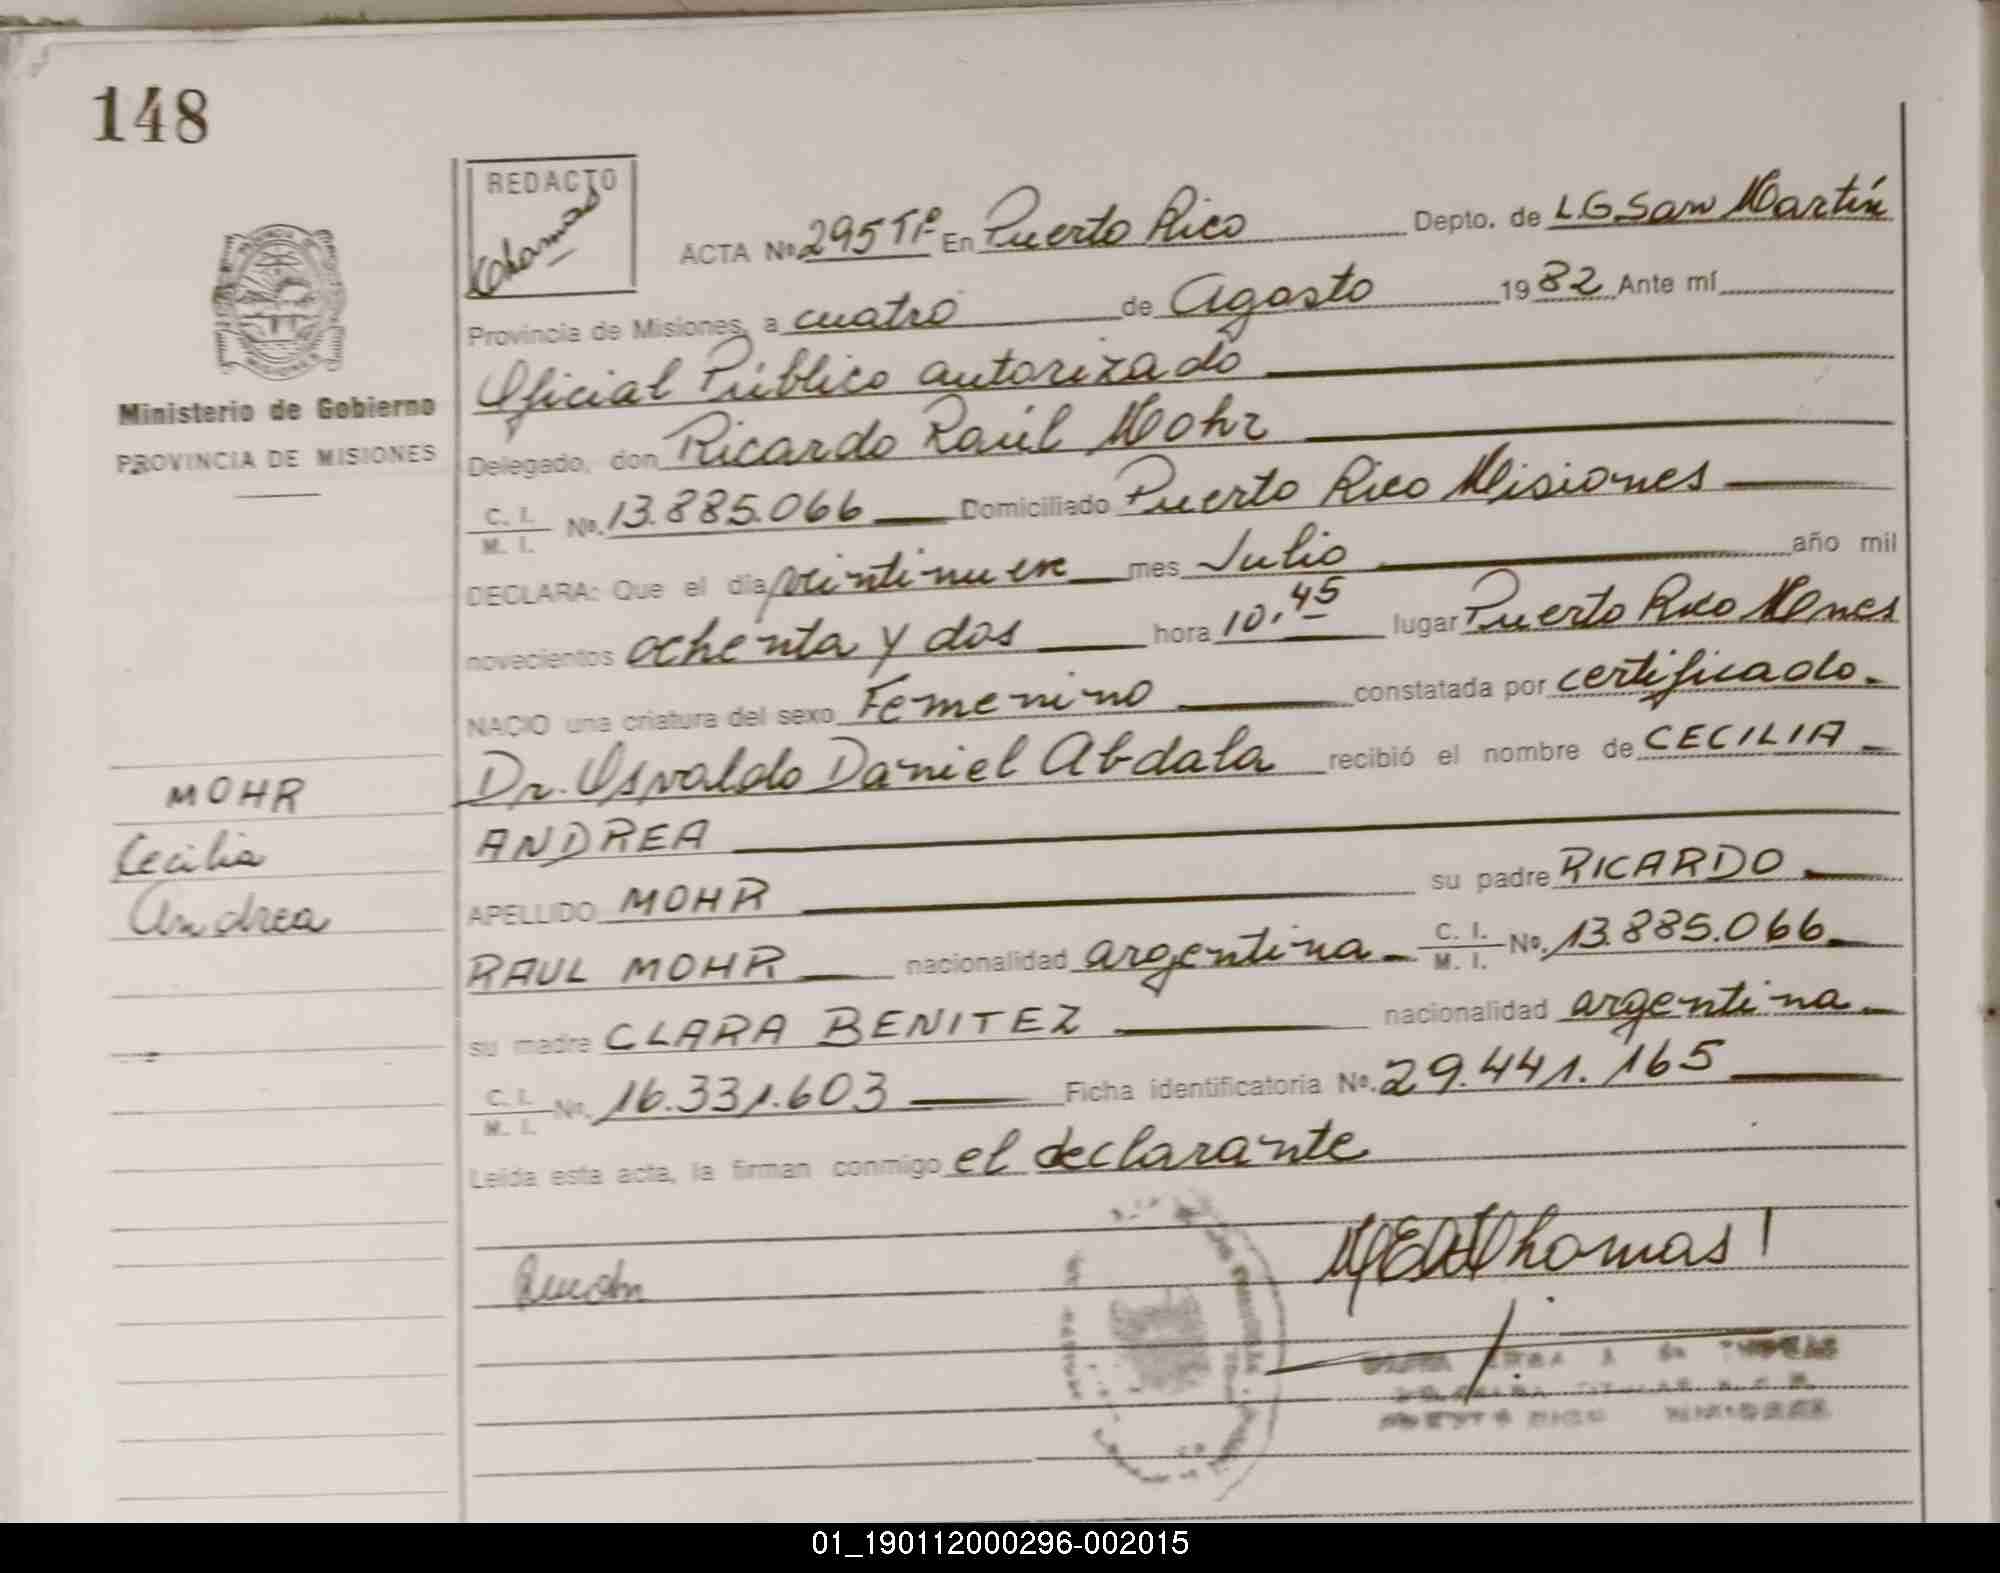 148
REDACTO
Thomas
ACTA Nº 295 Tº En Puerto Rico Depto. de LG San Martín
Provincia de Misiones, a cuatro de Agosto 1982 Ante mí
Oficial Público autorizado
Ministerio de Gobierno
PROVINCIA DE MISIONES
Delegado, don Ricardo Raúl Mohr
C. I. M. I. Nº. 13.885.066 Domiciliado Puerto Rico Misiones
DECLARA: Que el día veintinueve mes Julio año mil
novecientos ochenta y dos hora 10,45 lugar Puerto Rico Mnes
NACIO una criatura del sexo Femenino constatada por certificado.
Dr. Osvaldo Daniel Abdala recibió el nombre de CECILIA
ANDREA
MOHR
Cecilia
Andrea
APELLIDO MOHR su padre RICARDO
RAUL MOHR nacionalidad argentina C. I. M. I. Nº. 13.885.066
su madre CLARA BENITEZ nacionalidad argentina
C. I. M. I. Nº. 16.331.603 Ficha identificatoria Nº. 29.441.165
Leída esta acta, la firman conmigo el declarante
Thomas
PUERTO RICO MISIONES
01_190112000296-002015